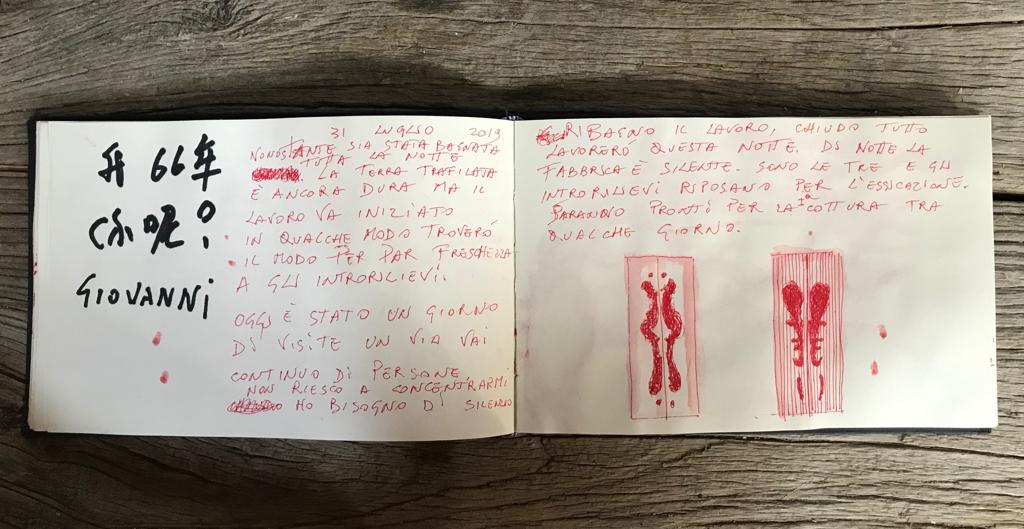 66年
你呢?
GIOVANNI
31 LUGLIO 2019
NONOSTANTE SIA STATA BAGNATA
TUTTA LA NOTTE
LA TERRA TRAFILATA
È ANCORA DURA MA IL
LAVORO VA INIZIATO
IN QUALCHE MODO TROVERÓ
IL MODO PER DAR FRESCHEZZA
A GLI INTRORILIEVI.
OGGI È STATO UN GIORNO
DI VISITE UN VIA VAI
CONTINUO DI PERSONE,
NON RIESCO A CONCENTRARMI
HO BISOGNO DI SILENZIO
RIBAGNO IL LAVORO, CHIUDO TUTTO
LAVORERÓ QUESTA NOTTE. DI NOTTE LA
FABBRICA È SILENTE. SONO LE TRE E GLI
INTRORILIEVI RIPOSANO PER L'ESSICAZIONE.
SARANNO PRONTI PER LA 1° COTTURA TRA
QUALCHE GIORNO.